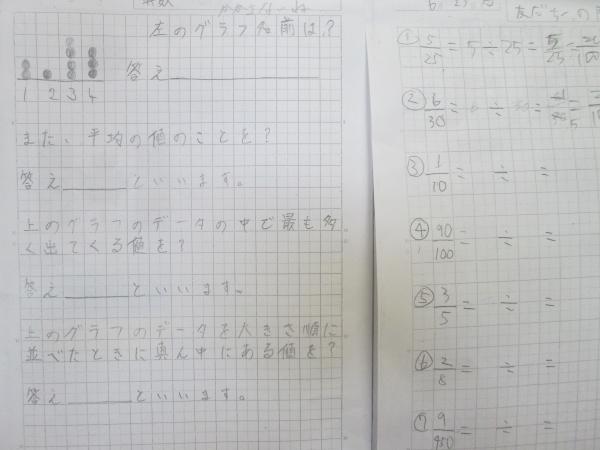 算数
左のグラフの名前は？
答え
1 2 3 4
また、平均の値のことを？
答え といいます。
上のグラフのデータの中で最も多
く出てくる値を？
答え といいます。
上のグラフのデータを大きさ順に
並べたときに真ん中にある値を？
答え といいます。
① 5/25 = 5 ÷ 25 = 5/25 =
② 6/30 = ÷ = =
③ 1/10 = ÷ =
④ 90/100 = ÷ =
⑤ 3/5 = ÷ =
⑥ 2/8 = ÷ =
⑦ 9/450 = ÷ =